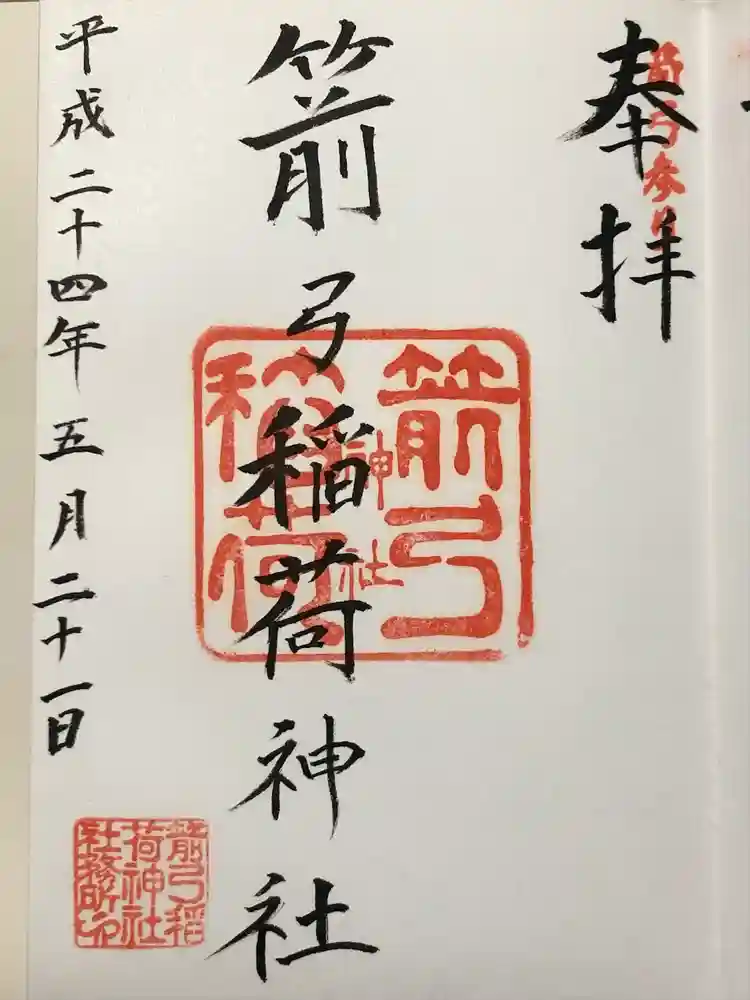 奉拝
箭弓参拝
箭弓稲荷神社
箭弓
稲荷
神社
平成二十四年五月二十一日
箭弓稲
荷神社
社務所印